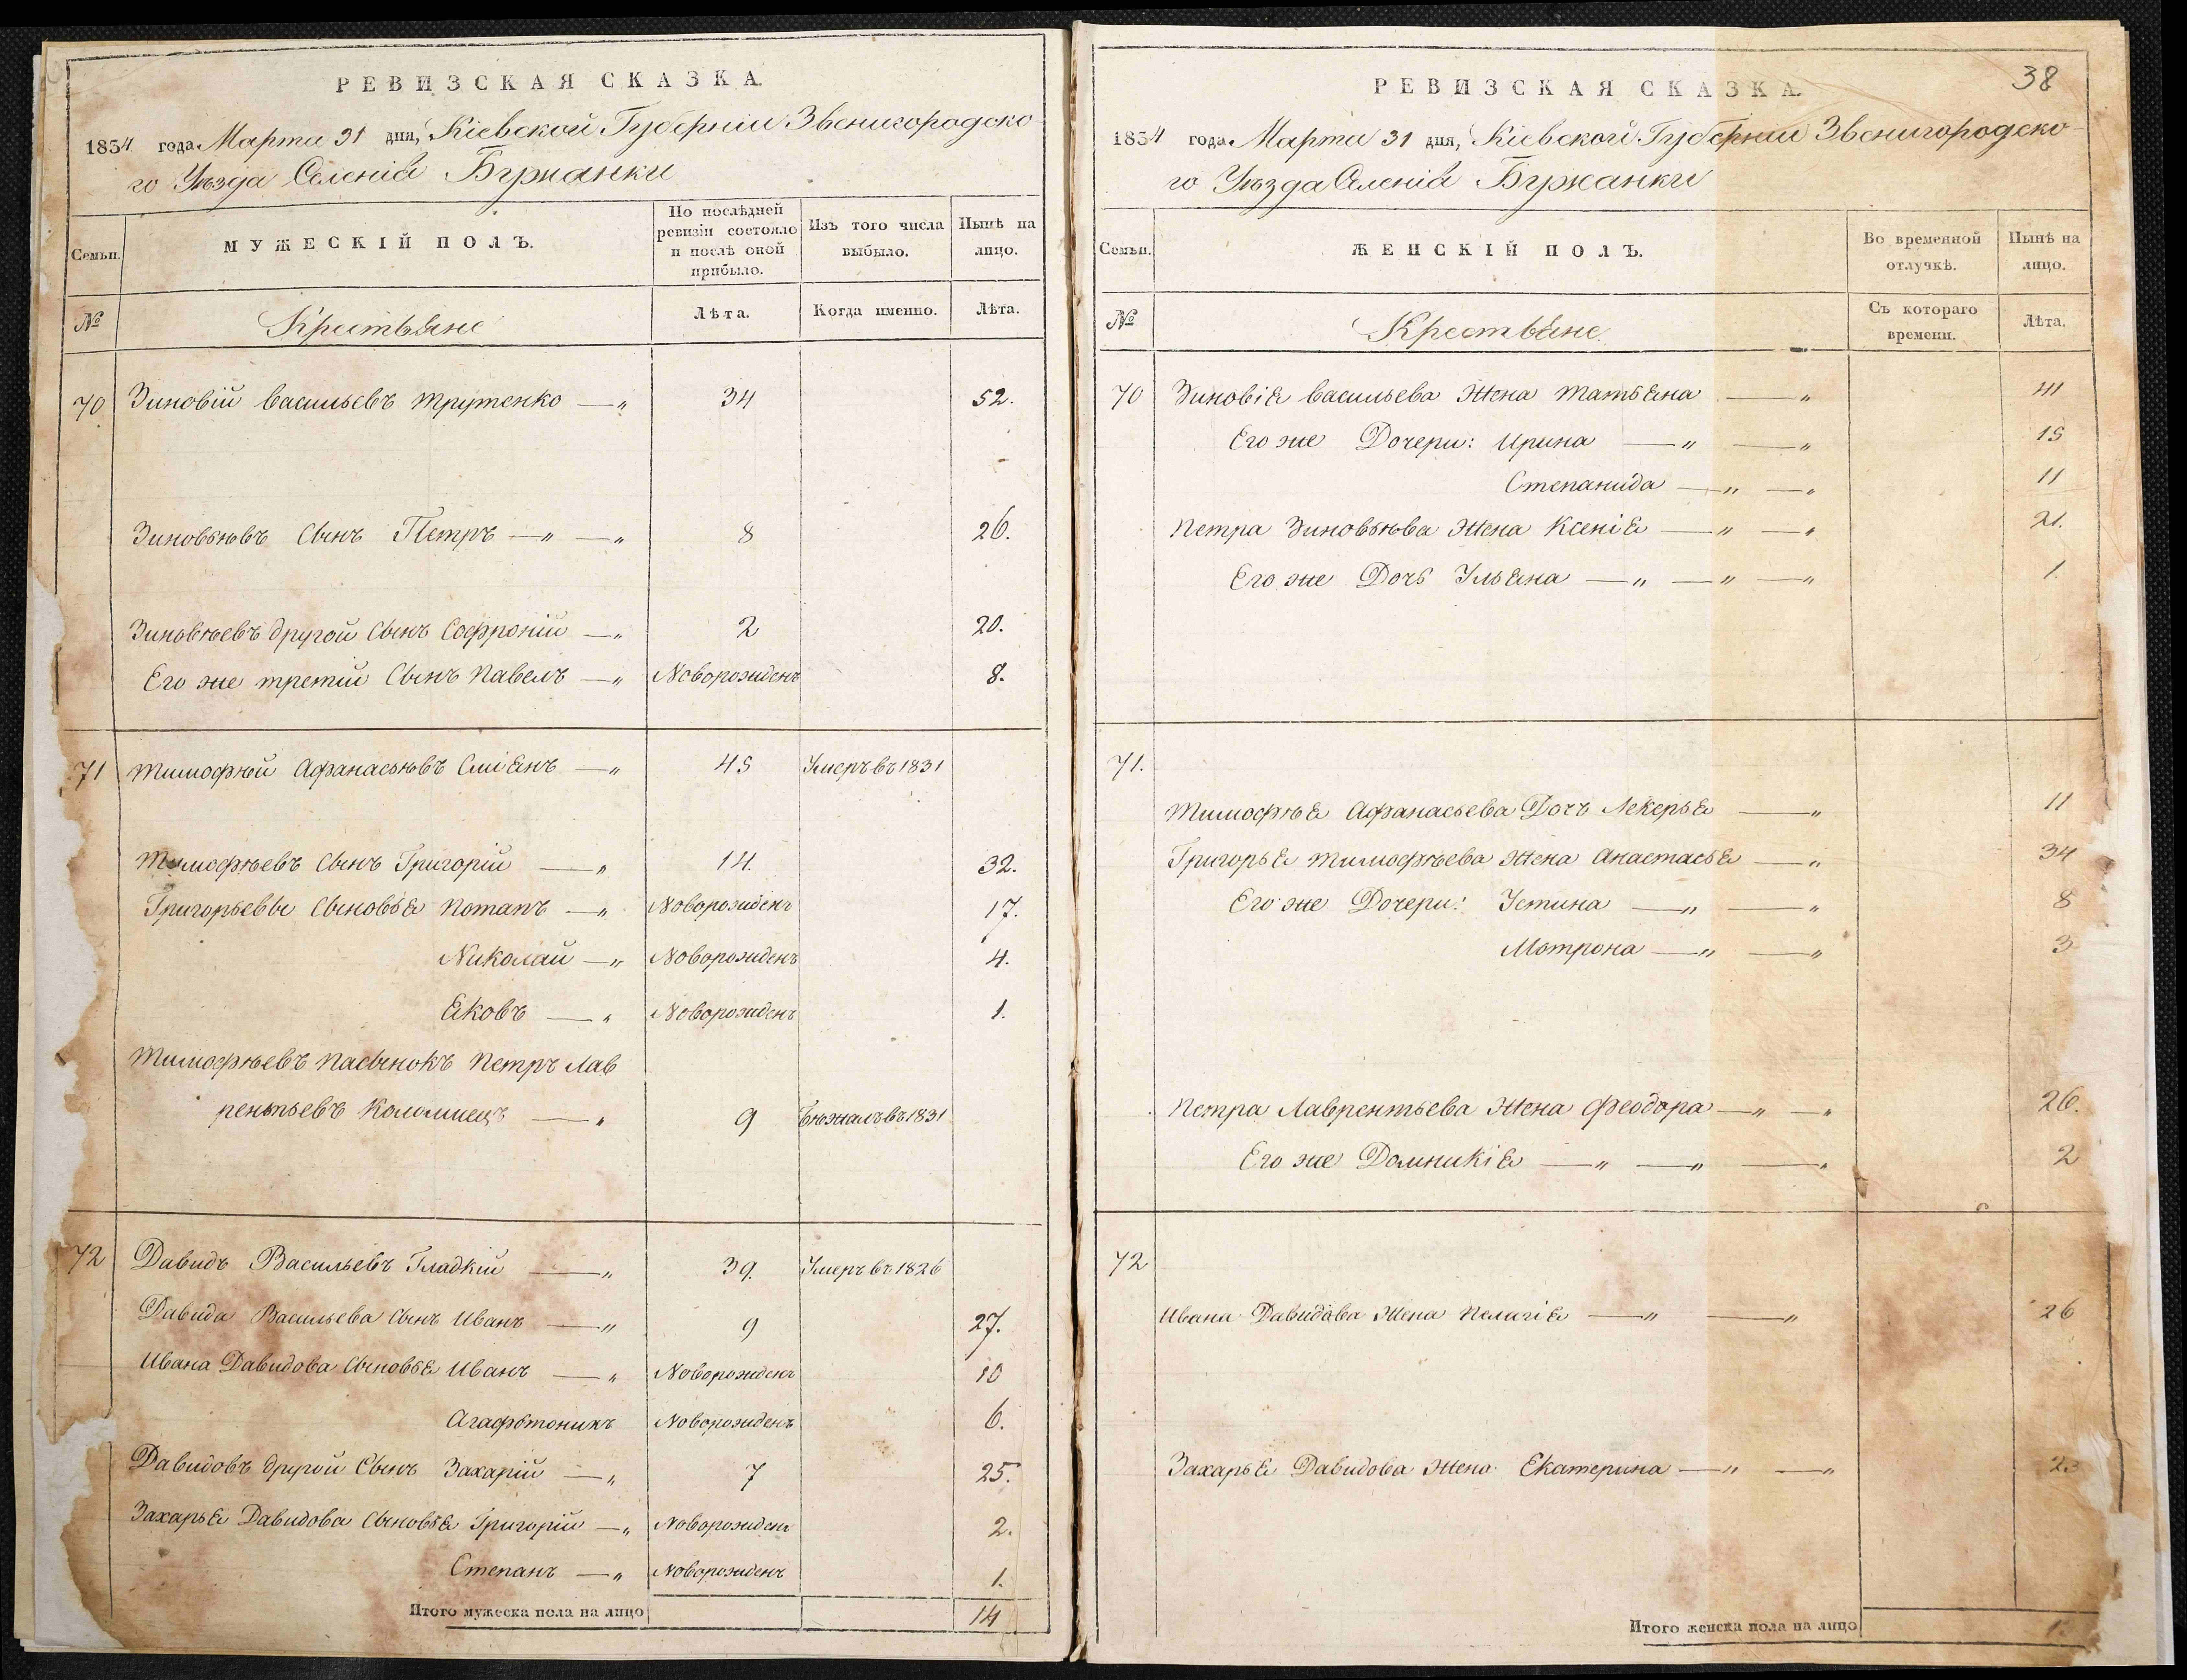 РЕВИЗСКАЯ СКАЗКА.
1834 года Марта 31 дня, Кіевской Губерніи Звенигородско
го Уѣзда Селенія Бужанки
Семьи. МУЖЕСКІЙ ПОЛЪ. По послѣдней ревизіи состояло и послѣ оной прибыло. Изъ того числа выбыло. Нынѣ на лицо.
№ Крестьяне Лѣта. Когда именно. Лѣта.
70 Зиновій Васильевъ Трутенко —„ 34 52.
Зиновьѣвъ Сынъ Петръ —„ —„ 8 26.
Зиновѣевъ другой Сынъ Софроній —„ 2 20.
Его же третій Сынъ Павелъ —„ Новорожденъ 8.
71 Тимофѣй Афанасьѣвъ —„ 45 Умеръ въ 1831
Тимофѣевъ Сынъ Григорій —„ 14. 32.
Григорьевы Сыновья Потапъ —„ Новорожденъ 17.
Николай —„ Новорожденъ 4.
Яковъ —„ Новорожденъ 1.
Тимофѣевъ Пасынокъ Петръ Лав
рентьевъ Коломиецъ —„ 9 Бѣжалъ въ 1831
72 Давидъ Васильевъ Гладкій —„ 39. Умеръ въ 1826
Давида Васильева Сынъ Иванъ —„ 9 27.
Ивана Давидова Сыновья Иванъ —„ Новорожденъ 10
Агафьтоникъ Новорожденъ 6.
Давидовъ другой Сынъ Захарій —„ 7 25.
Захарья Давидова Сыновья Григорій —„ Новорожденъ 2.
Степанъ —„ Новорожденъ 1.
Итого мужеска пола на лицо 14
38
РЕВИЗСКАЯ СКАЗКА.
1834 года Марта 31 дня, Кіевской Губерніи Звенигородско-
го Уѣзда Селенія Бужанки
Семьи. ЖЕНСКІЙ ПОЛЪ. Во временной отлучкѣ. Нынѣ на лицо.
№ Крестьяне. Съ котораго времени. Лѣта.
70 Зиновія Васильева Жена Татьяна —„ 41
Его же Дочери: Ирина —„ —„ 15
Степанида —„ —„ 11
Петра Зиновьѣва Жена Ксенія —„ —„ 21.
Его же Дочь Ульяна —„ —„ —„ 1.
71.
Тимофѣя Афанасьева Дочъ Лекерья —„ 11
Григорья Тимофѣева Жена Анастасья —„ 34
Его же Дочери: Устина —„ —„ 8
Мотрона —„ —„ 3
Петра Лаврентьева Жена Феодора —„ —„ 26.
Его же Домникія —„ —„ —„ 2
72
Ивана Давидова Жена Пелагія —„ —„ 26
Захарья Давидова Жена Екатерина —„ —„
Итого женска пола на лицо